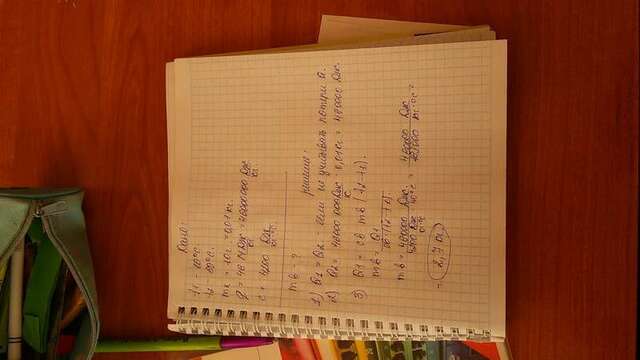 Дано:
t2 = 60°C.
mк = 10г. = 0,01 кг.
q = 48 МДж/кг = 48000000 Дж/кг
c = 4200 Дж/кг·°C
mв - ?
решение:
1) Q1 = Q2 - если не учитывать потери Q.
2) Q2 = 48000000 Дж/кг · 0,01 кг = 480000 Дж.
3) Q1 = cв mв (t2 - t1).
mв = Q1 / cв · (t2 - t1).
mв = 480000 Дж. / 4200 Дж/кг·°C · 40°C =
= 2,7 кг.